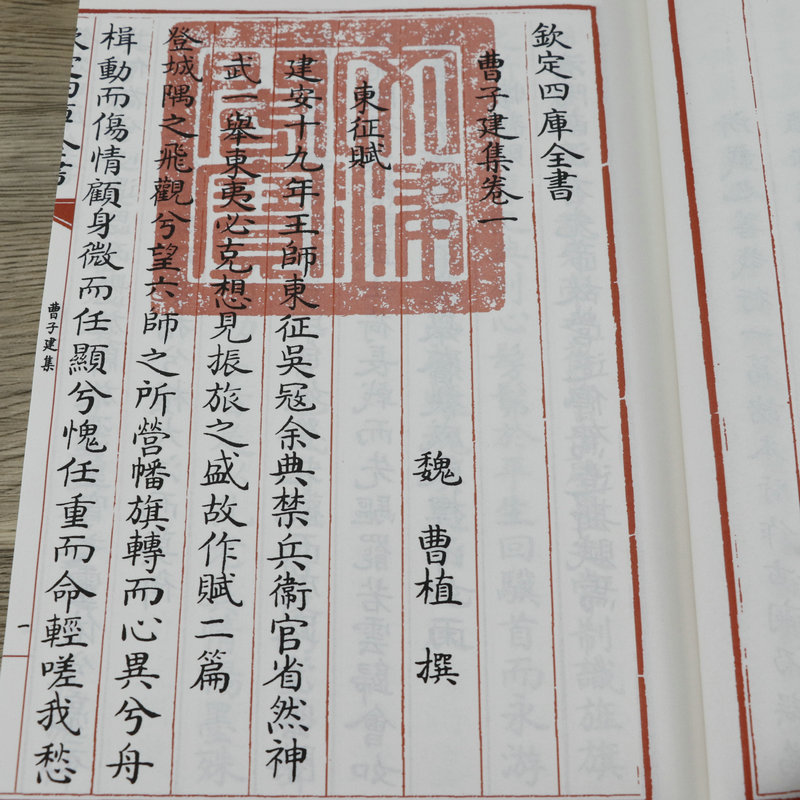 欽定四庫全書
曹子建集卷一
魏 曹植 撰
東征賦
建安十九年王師東征吳寇余典禁兵衞官省然神
武一舉東夷必克想見振旅之盛故作賦二篇
登城隅之飛觀兮望六師之所營幡旗轉而心異兮舟
楫動而傷情顧身微而任顯兮愧任重而命輕嗟我愁
欽定四庫全書
曹子建集
一